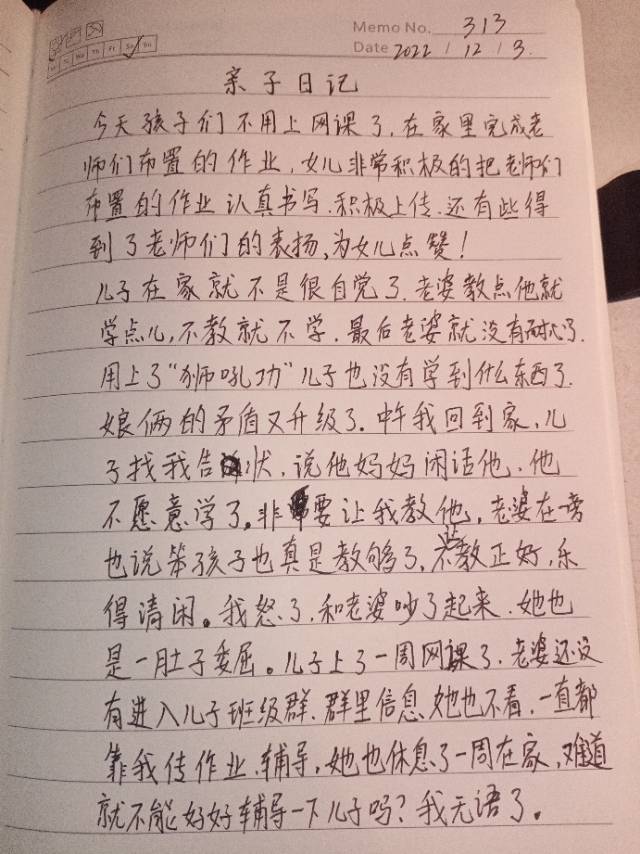 Memo No. 313
Mo Tu We Th Fr Sa Su
Date 2022 / 12 / 3.
亲子日记
今天孩子们不用上网课了,在家里完成老
师们布置的作业,女儿非常积极的把老师们
布置的作业认真书写.积极上传.还有些得
到了老师们的表扬,为女儿点赞!
儿子在家就不是很自觉了.老婆教点他就
学点儿,不教就不学.最后老婆就没有耐心了.
用上了“狮吼功”儿子也没有学到什么东西了.
娘俩的矛盾又升级了.中午我回到家,儿
子找我告状,说他妈妈闲话他,他
不愿意学了,非要让我教他,老婆在一旁
也说笨孩子也真是教够了,不教正好,乐
得清闲。我怒了,和老婆吵了起来.她也
是一肚子委屈。儿子上了一周网课了.老婆还没
有进入儿子班级群.群里信息她也不看,一直都
靠我传作业.辅导,她也休息了一周在家,难道
就不能好好辅导一下儿子吗?我无语了。